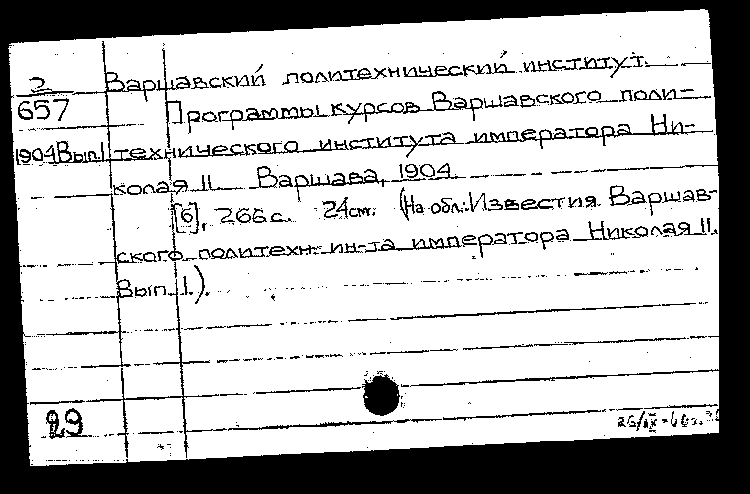 2 Варшавский политехнический институт.
657 Программы курсов Варшавского поли-
1904 Вып.1 технического института императора Ни-
колая II. Варшава, 1904.
[6], 266 с. 24 см. (На обл.: Известия Варшав-
ского политехн. ин-та императора Николая II.
Вып. 1.).
29